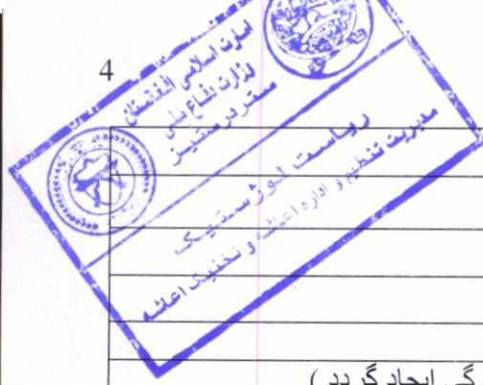 4
امارت اسلامی افغانستان
وزارت دفاع ملی
ستر درستیز
ریاست لوژستیک
مدیریت تنظیم و اداره اعاشه و تخنیک اعاشه
گی ایجاد گردد )